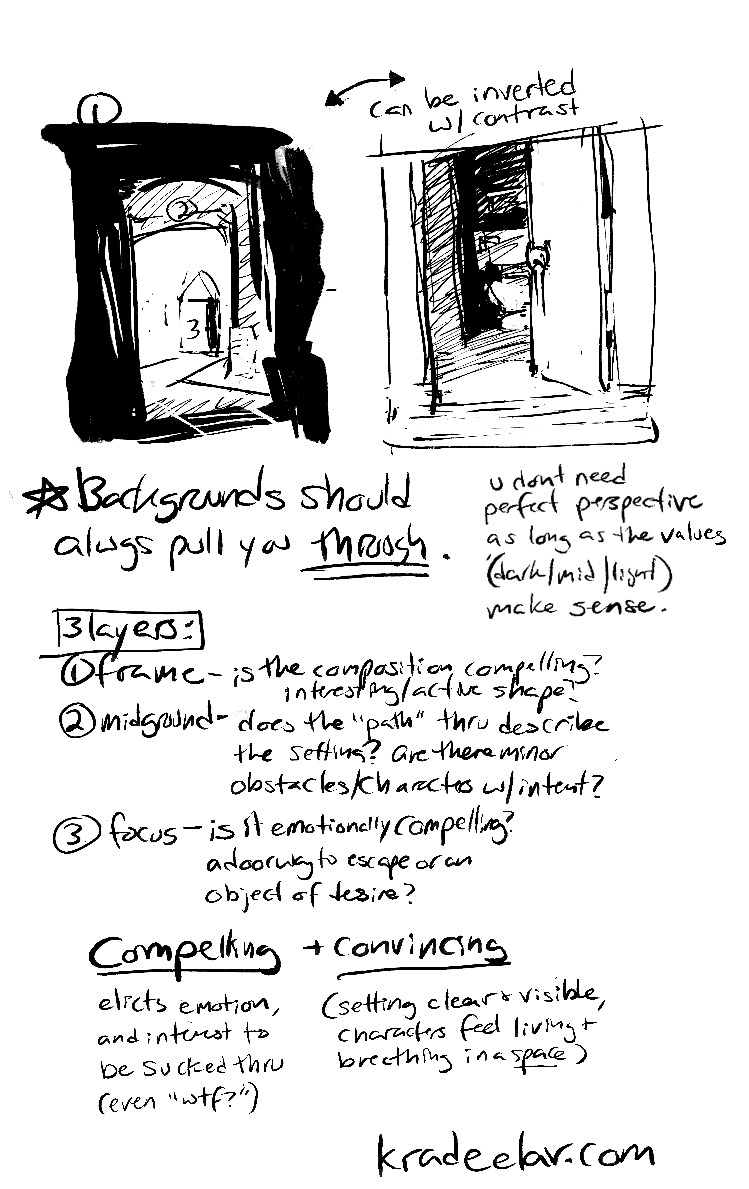 ①
can be inverted
w/ contrast
②
3
☆ Backgrounds should
always pull you through.
u dont need
perfect perspective
as long as the values
(dark/mid/light)
make sense.
3 layers:
① frame - is the composition compelling?
interesting/active shape?
② midground - does the "path" thru describe
the setting? are there minor
obstacles/charactes w/intent?
③ focus - is it emotionally compelling?
a doorway to escape or an
object of desire?
Compelling + convincing
elicts emotion,
and interest to
be sucked thru
(even "wtf?")
(setting clear + visible,
characters feel living +
breething in a space)
kradeelav.com